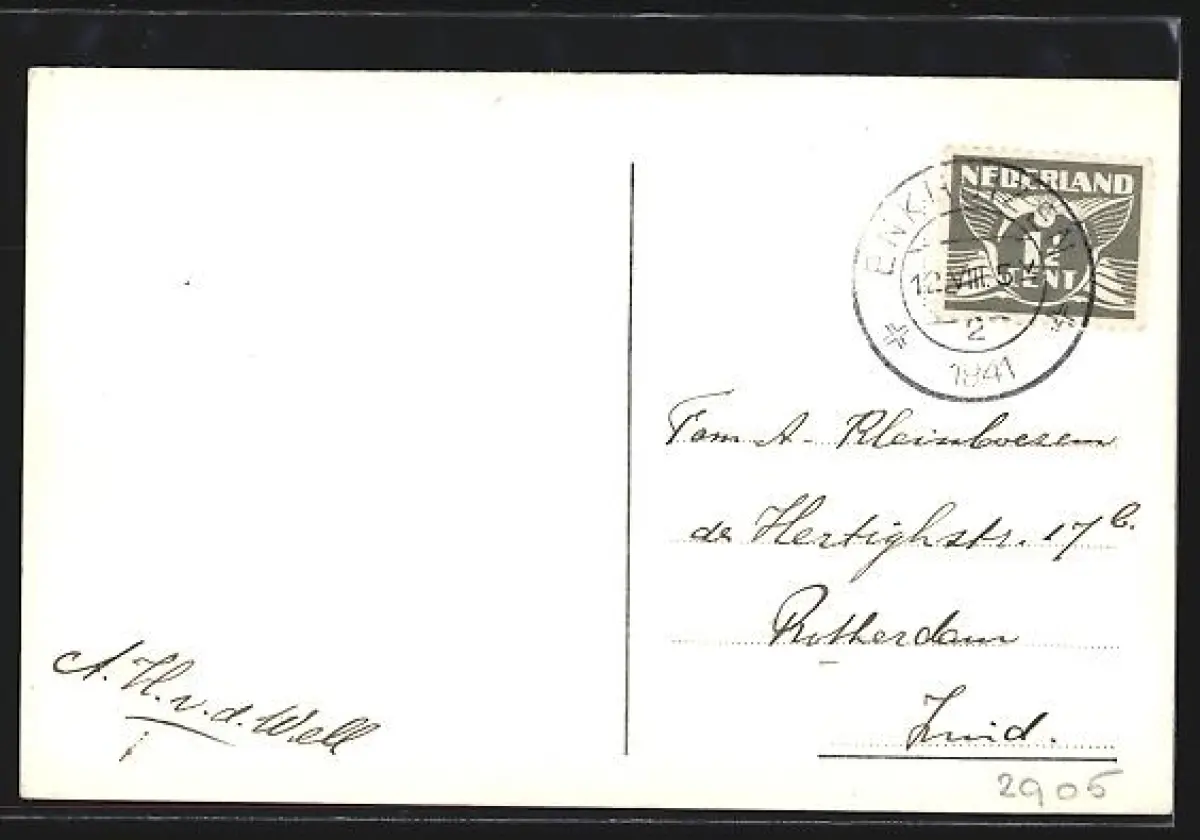 NEDERLAND
1½
CENT
ENKHUIZEN
12.VIII.
2
1941
Fam A. Kleinboesem
de Hertighstr. 17 b.
Rotterdam
Zuid.
A. H. v. d. Well
2905